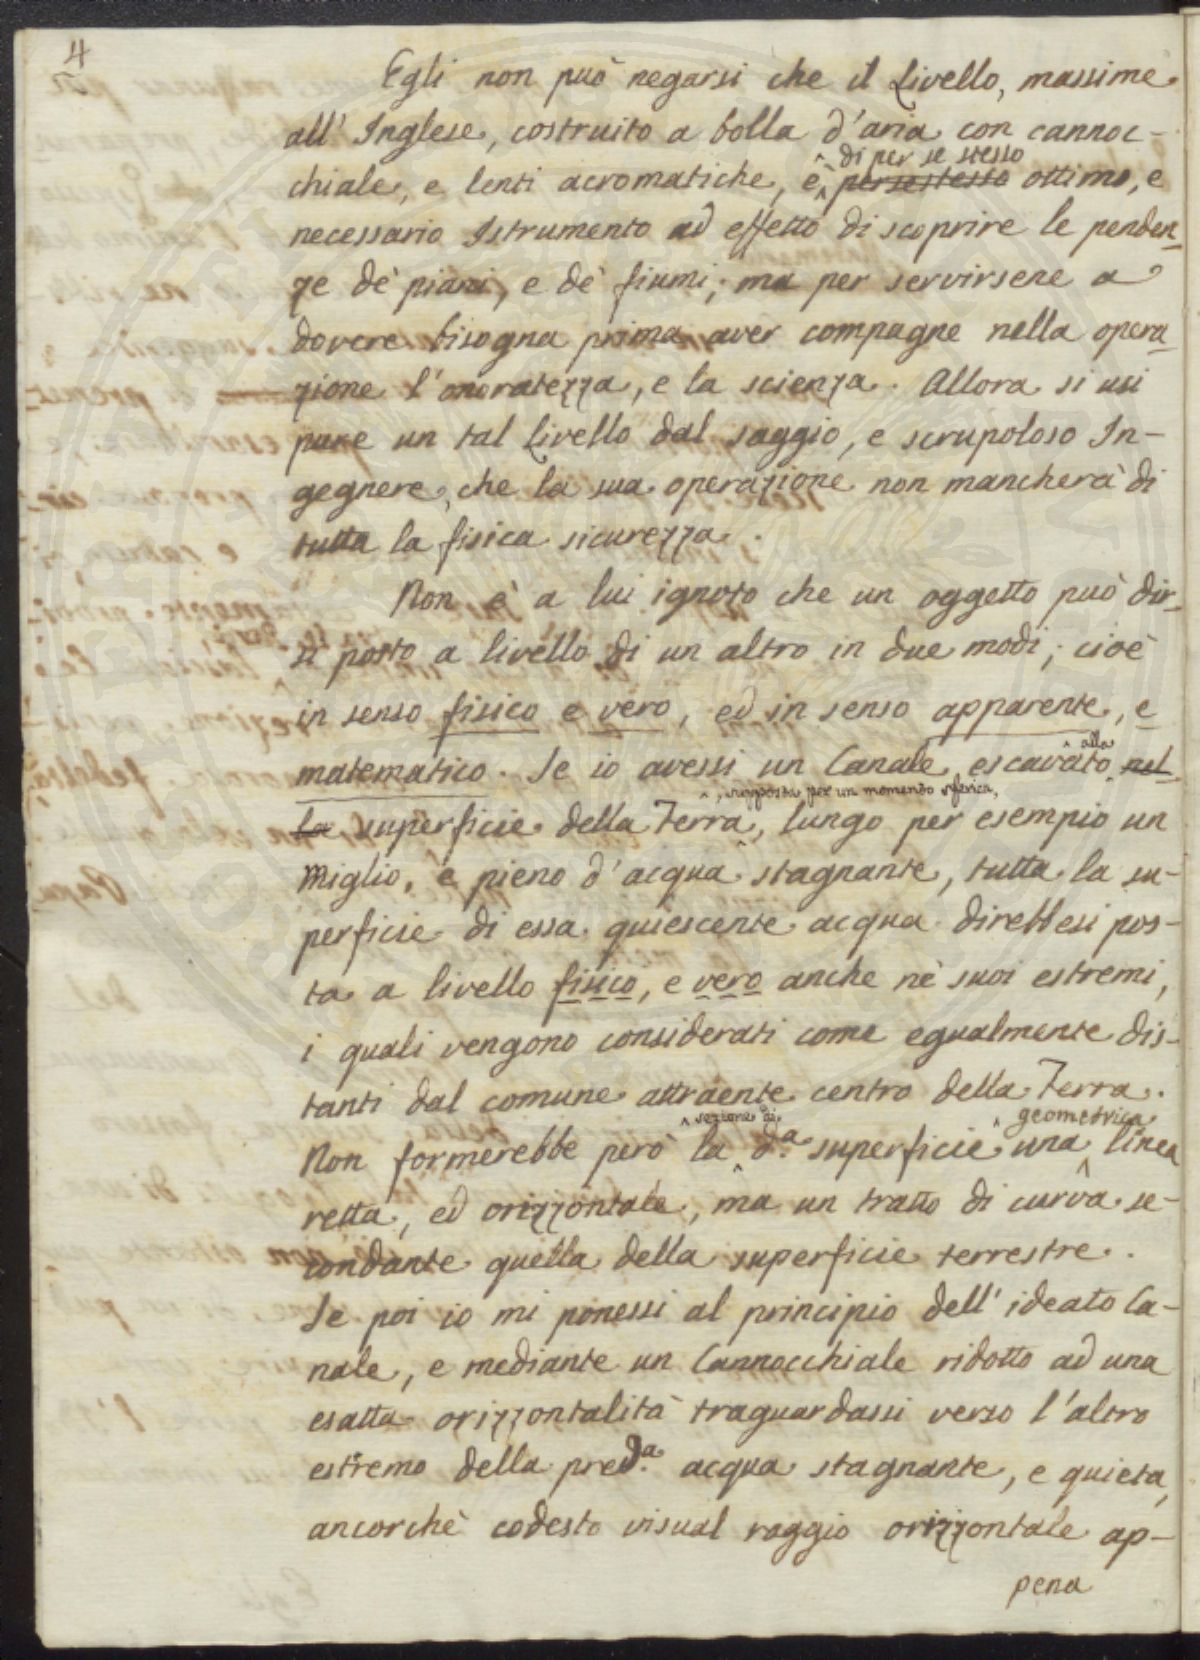 4
Egli non può negarsi che il Livello, massime
all' Inglese, costruito a bolla d'aria con cannoc-
chiale, e lenti acromatiche, è ^ di per se stesso persestesso ottimo, e
necessario Istrumento ad effetto di scoprire le penden-
ze dè piani, e dè fiumi; ma per servirsene a
dovere bisogna prima aver compagne nella opera-
zione l'onoratezza, e la scienza. Allora si usi
pure un tal Livello dal saggio, e scrupoloso In-
gegnere, che la sua operazione non mancherà di
tutta la fisica sicurezza.
Non è a lui ignoto che un oggetto può dir-
si posto a livello di un altro in due modi; cioè
in senso fisico e vero, ed in senso apparente, e
matematico. Se io avessi un Canale escavato ^ alla nel
la superficie della Terra ^, supposta per un momento sferica, lungo per esempio un
Miglio, e pieno d'acqua stagnante, tutta la su-
perficie di essa quiescente acqua direbbesi pos-
ta a livello fisico, e vero anche nè suoi estremi,
i quali vengono considerati come egualmente dis-
tanti dal comune attraente centro della Terra.
Non formerebbe però la ^ sezione di d.a superficie una ^ geometrica linea
retta, ed orizzontale, ma un tratto di curva se-
condante quella della superficie terrestre.
Se poi io mi ponessi al principio dell' ideato Ca-
nale, e mediante un Cannocchiale ridotto ad una
esatta orizzontalità traguardassi verso l'altro
estremo della pred.a acqua stagnante, e quieta,
ancorchè codesto visual raggio orizzontale ap-
pena